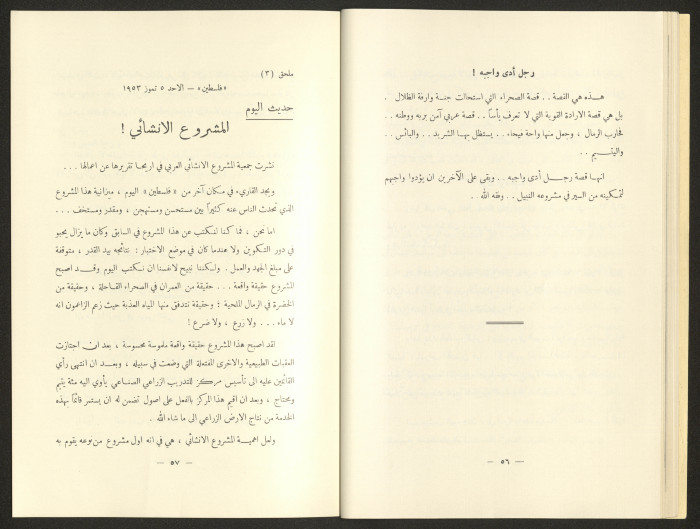 رجل أدى واجبه !
هـذه هي القصة . . قصة الصحراء التي استحالت جنة وارفة الظلال .
بل هي قصة الارادة القوية التي لا تعرف يأساً . . قصة عربي آمن بربه ووطنه . .
فحارب الرمال ، وجعل منها واحة فيحاء . . يستظل بهـا الشريد . . والبائس . .
واليتـيـم . .
انهـا قصة رجـل أدى واجبه . . وبقى على الآخرين ان يؤدوا واجبهم
لتمكينه من السير في مشروعه النبيل . . وفقه الله . .
— ٥٦ —
ملحق (٣)
«فلسطين» — الاحد ٥ تموز ١٩٥٣
حديث اليوم
المشروع الانشائي !
نشرت جمعية المشروع الانشائي العربي في اريحا تقريرها عن اعمالها . . .
ويجد القارىء في مكان آخر من « فلسطين » اليوم ، ميزانية هذا المشروع
الذي تحدث الناس عنه كثيراً بين مستحسن ومستهجن ، ومقدر ومستخف . . .
اما نحن ، فما كنا لنكتب عن هذا المشروع في السابق وكان ما يزال يحبو
في دور التكوين ولا عندما كان في موضع الاختبار : نتائجه بيد القدر ، متوقفة
على مبلغ الجهد والعمل . ولكننا نبيح لانفسنا ان نكتب اليوم وقـد اصبح
المشروع حقيقة واقعة . . . حقيقة من العمران في الصحراء القـاحلة ، وحقيقة من
الخضرة في الرمال الملحية ؛ وحقيقة تتدفق منها المياه العذبة حيث زعم الزاعمون انه
لا ماء . . . ولا زرع ، ولا ضرع !
لقد اصبح هذا المشروع حقيقة واقعة ملموسة محسوسة ، بعد ان اجتازت
العقبات الطبيعية والاخرى المفتعلة التي وضعت في سبيله ، وبعـد ان انتهى رأي
القائمين عليه الى تأسيس مركـز للتدريب الزراعي الصنـاعي يأوي اليه مئة يتيم
ومحتاج ، وبعد ان اقيم هذا المركز بالفعل على اصول تضمن له ان يستمر قائماً بهـذه
الخدمة من نتاج الارض الزراعي الى ما شاء الله .
ولعل اهميـة المشروع الانشائي ، هي في انه اول مشروع من نوعه يقوم به
— ٥٧ —